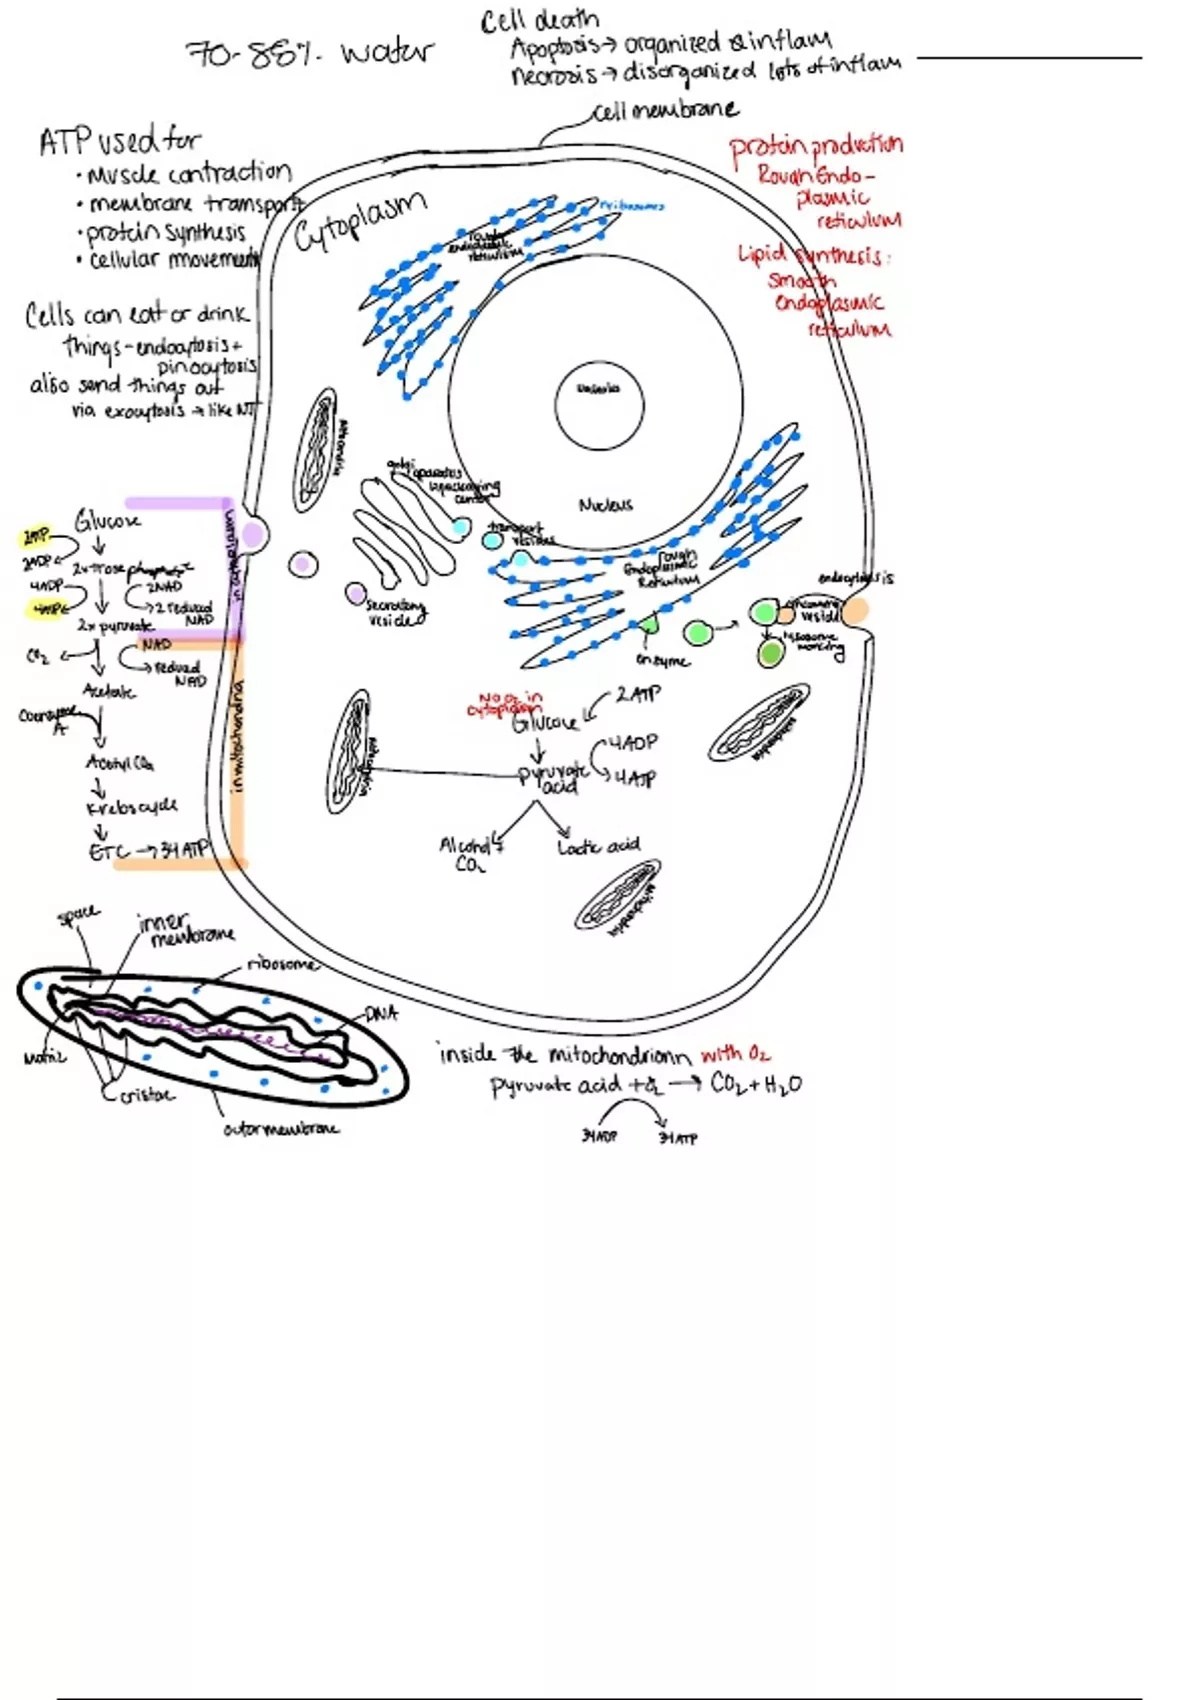 Cell death
70-85%. water
Apoptosis → organized & inflam
Necrosis → disorganized lots of inflam
cell membrane
ATP used for
• Muscle contraction
• membrane transport
• protein synthesis
• cellular movement
Cytoplasm
protein production
Rough Endo-
plasmic
reticulum
Lipid synthesis:
Smooth
endoplasmic
reticulum
ribosomes
rough
endoplasmic
reticulum
Cells can eat or drink
things - endocytosis +
pinocytosis
also send things out
via exocytosis → like NT
mitochondria
Nucleus
golgi
apparatus
center
transport
vesicles
rough
Endoplasmic
Reticulum
secretory
vesicle
enzyme
endocytosis
vesicle
lysosome
working
Glucose
2ATP
2ADP
2x triose phosphate
4ADP
4ATP
2NAD
2 reduced
NAD
2x pyruvate
in cytoplasm
CO2
NAD
reduced
NAD
Acetate
Coenzyme
A
Acetyl CoA
Krebs cycle
ETC → 34 ATP
in mitochondria
No O2 in
cytoplasm
Glucose
2ATP
pyruvate
acid
4ADP
4ATP
Alcohol +
CO2
Lactic acid
mitochondria
mitochondria
mitochondria
space
inner
membrane
ribosome
DNA
Matrix
cristae
outer membrane
inside the mitochondrionn with O2
pyruvate acid + O2 → CO2 + H2O
34ADP
34ATP